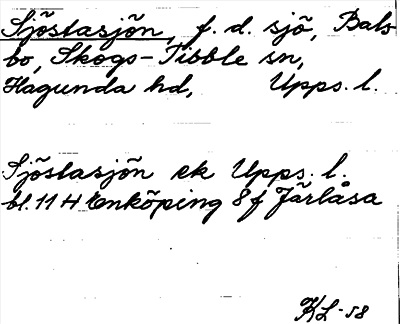 Sjöstasjön, f. d. sjö, Bals-
bo, Skogs-Tibble sn,
Hagunda hd, Upps. l.
Sjöstasjön ek Upps. l.
bl. 11 H Enköping 8 f Järlåsa
KL-58